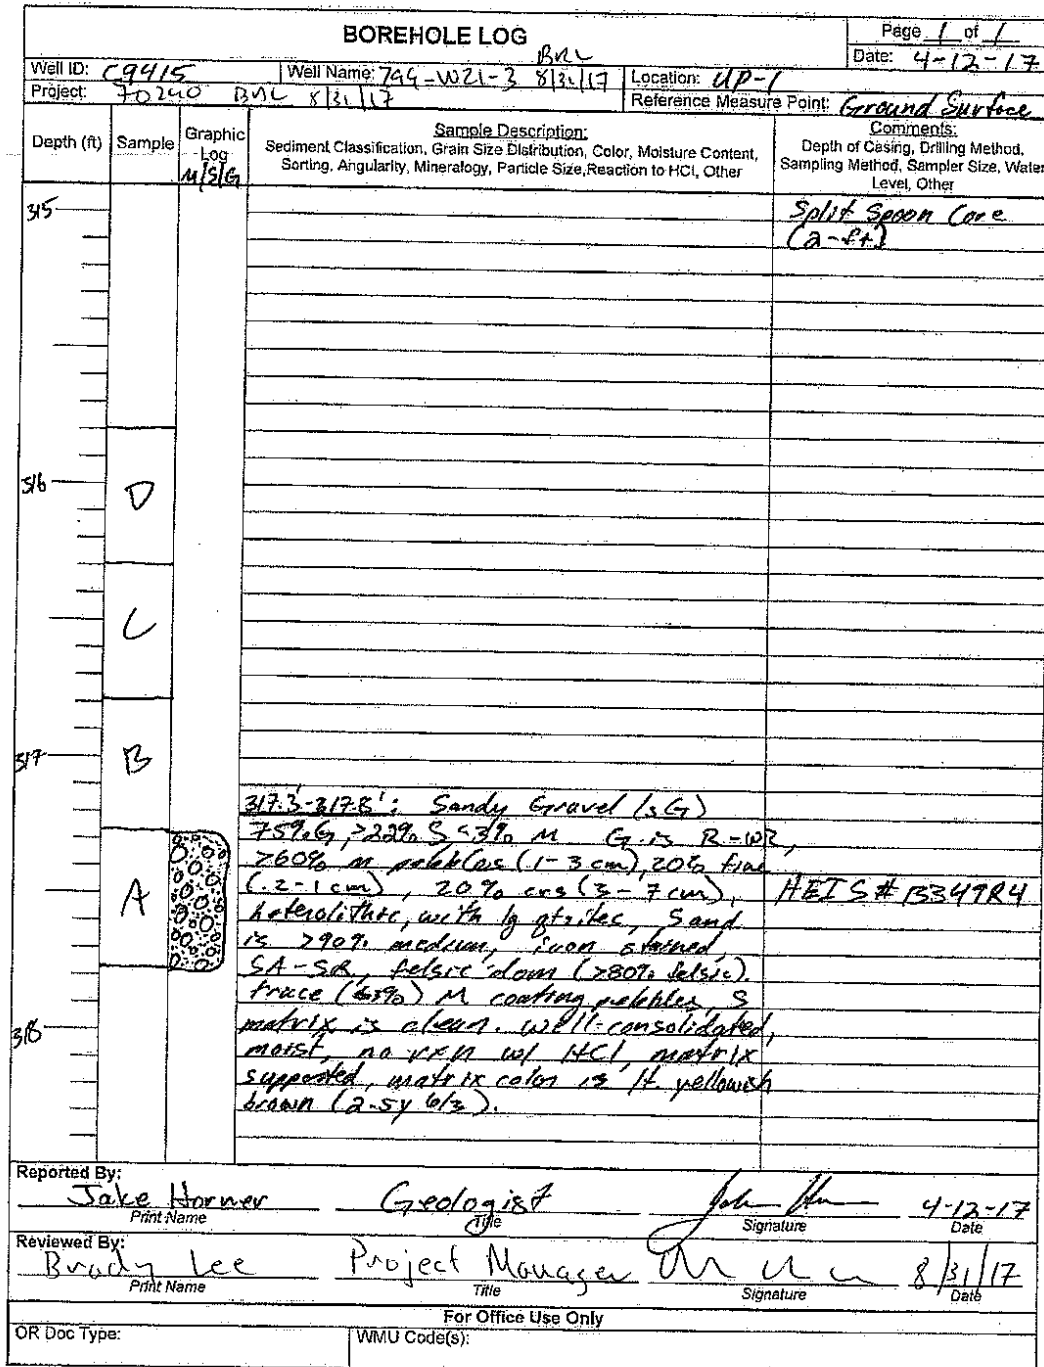 BOREHOLE LOG
Page 1 of 1
Date: 4-12-17
BRL
Well ID: C9415 Well Name: 299-W21-3 8/31/17 Location: UP-1
Project: 70240 BRL 8/31/17 Reference Measure Point: Ground Surface
Depth (ft) Sample Graphic Log M/S/G
Sample Description:
Sediment Classification, Grain Size Distribution, Color, Moisture Content,
Sorting, Angularity, Mineralogy, Particle Size, Reaction to HCl, Other
Comments:
Depth of Casing, Drilling Method,
Sampling Method, Sampler Size, Water
Level, Other
315
Split Spoon Core
(2-ft)
316
D
C
317
B
317.3'-317.8': Sandy Gravel (sG)
75% G, >22% S <3% M G is R-WR,
>60% m pebbles (1-3 cm), 20% fine
(.2-1 cm), 20% crs (3-7 cm),
A
HEIS# B349R4
heterolithic, with lg qtzites, Sand
is >90% medium, iron stained,
SA-SR, felsic dom (>80% felsic).
trace (<3%) M coating pebbles, S
318
matrix is clean. well-consolidated,
moist, no rxn w/ HCl, matrix
supported, matrix color is lt yellowish
brown (2.5y 6/3).
Reported By:
Jake Horner Geologist 4-12-17
Print Name Title Signature Date
Reviewed By:
Brady Lee Project Manager 8/31/17
Print Name Title Signature Date
For Office Use Only
OR Doc Type: WMU Code(s):